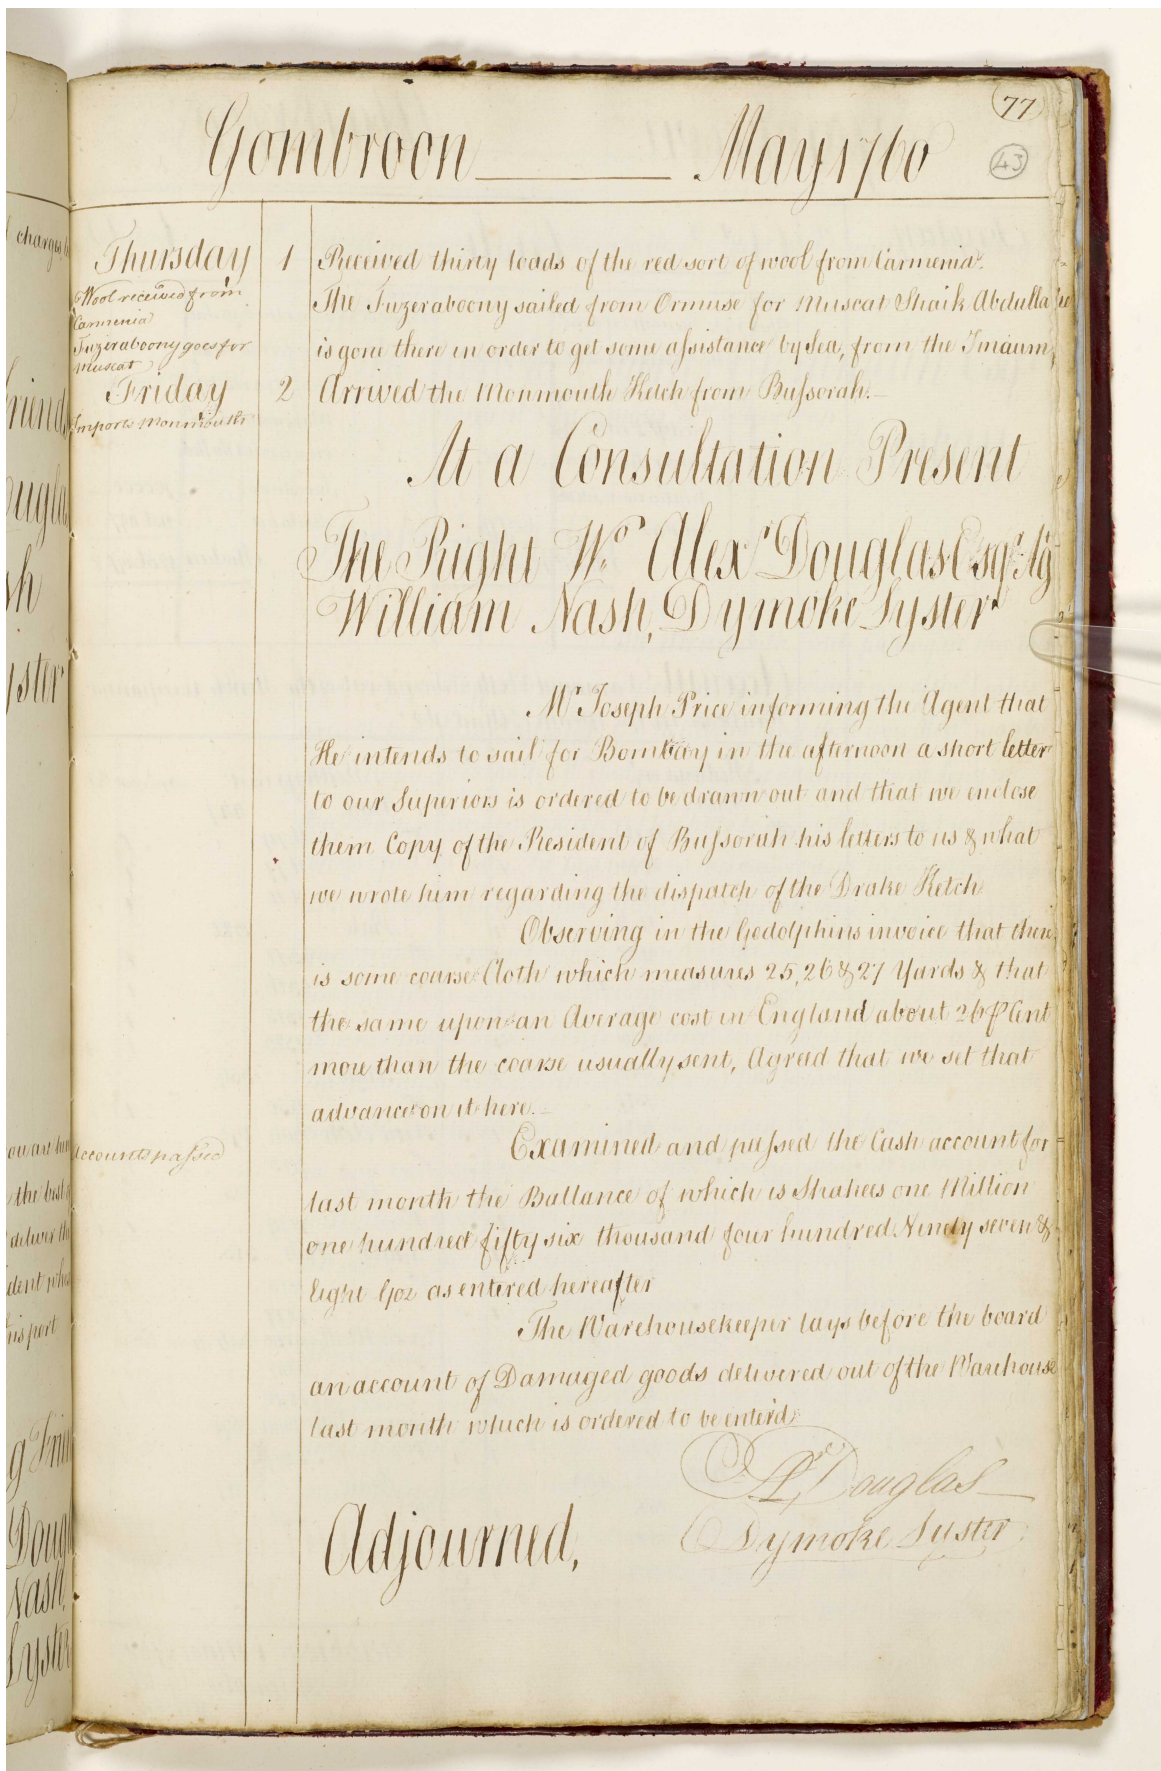 77
43
Gombroon May 1760
Thursday 1 Received thirty loads of the red sort of wool from Carmenia.
Wool received from
Carmenia
The Fuzeraboony sailed from Ormuse for Muscat Shaik Abdulla
Fuzeraboony goes for
Muscat
is gone there in order to get some assistance by Sea, from the Imaum,
Friday 2 Arrived the Monmouth Ketch from Bussorah.
Imports Monmouth
At a Consultation Present
The Right Wo. Alexr. Douglas Esqr. Ag
William Nash, Dymoke Lyster
Mr Joseph Price informing the Agent that
He intends to sail for Bombay in the afternoon a short letter
to our Superiors is ordered to be drawn out and that we enclose
them Copy of the President of Bussorah his letters to us & what
we wrote him regarding the dispatch of the Drake Ketch
Observing in the Godolphins invoice that there
is some coarse Cloth which measures 25, 26 & 27 Yards & that
the same upon an Average cost in England about 26 P Cent
more than the coarse usually sent, Agreed that we set that
advance on it here.
Accounts passed
Examined and passed the Cash account for
last month the Ballance of which is Shahees one Million
one hundred fifty six thousand four hundred Ninety seven &
Eight Goz as entered hereafter
The Warehousekeeper lays before the board
an account of Damaged goods delivered out of the Warehouse
last month which is ordered to be enter'd.
Ar Douglas
Dymoke Lyster
Adjourned,